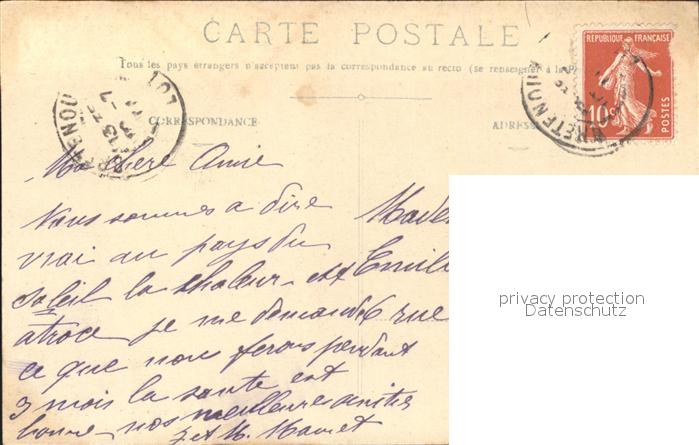 CARTE POSTALE
Tous les pays étrangers n'acceptent pas la correspondance au recto (se renseigner à la P
CORRESPONDANCE
ADRES
REPUBLIQUE FRANÇAISE
10c
POSTES
LOT
BRETENOUX
Ma chère Amie
Nous sommes a dire
vrai au pays du
soleil la chaleur est
atroce je me demande
ce que nous ferons pendant
3 mois la santé est
bonne nos meilleure amitiés
J et M.
Made
Emil
6 rue
privacy protection
Datenschutz